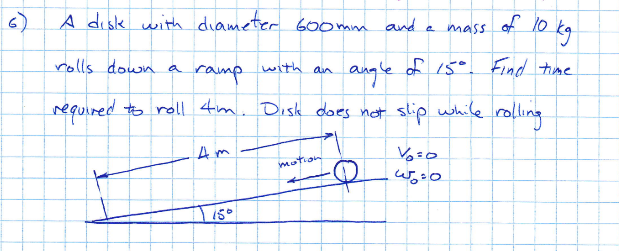 6) A disk with diameter 600mm and a mass of 10 kg
rolls down a ramp with an angle of 15°. Find time
required to roll 4m. Disk does not slip while rolling
4m
motion
V₀=0
ω₀=0
15°